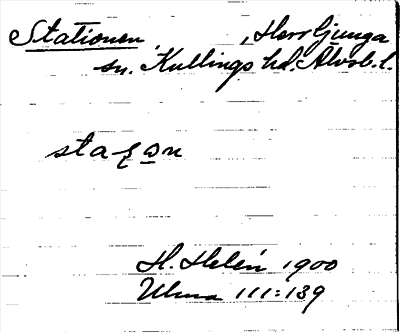 Stationen, Herrljunga
sn. Kullings hd. Älvsb. l.
H. Helén 1900
Ulma 111:139